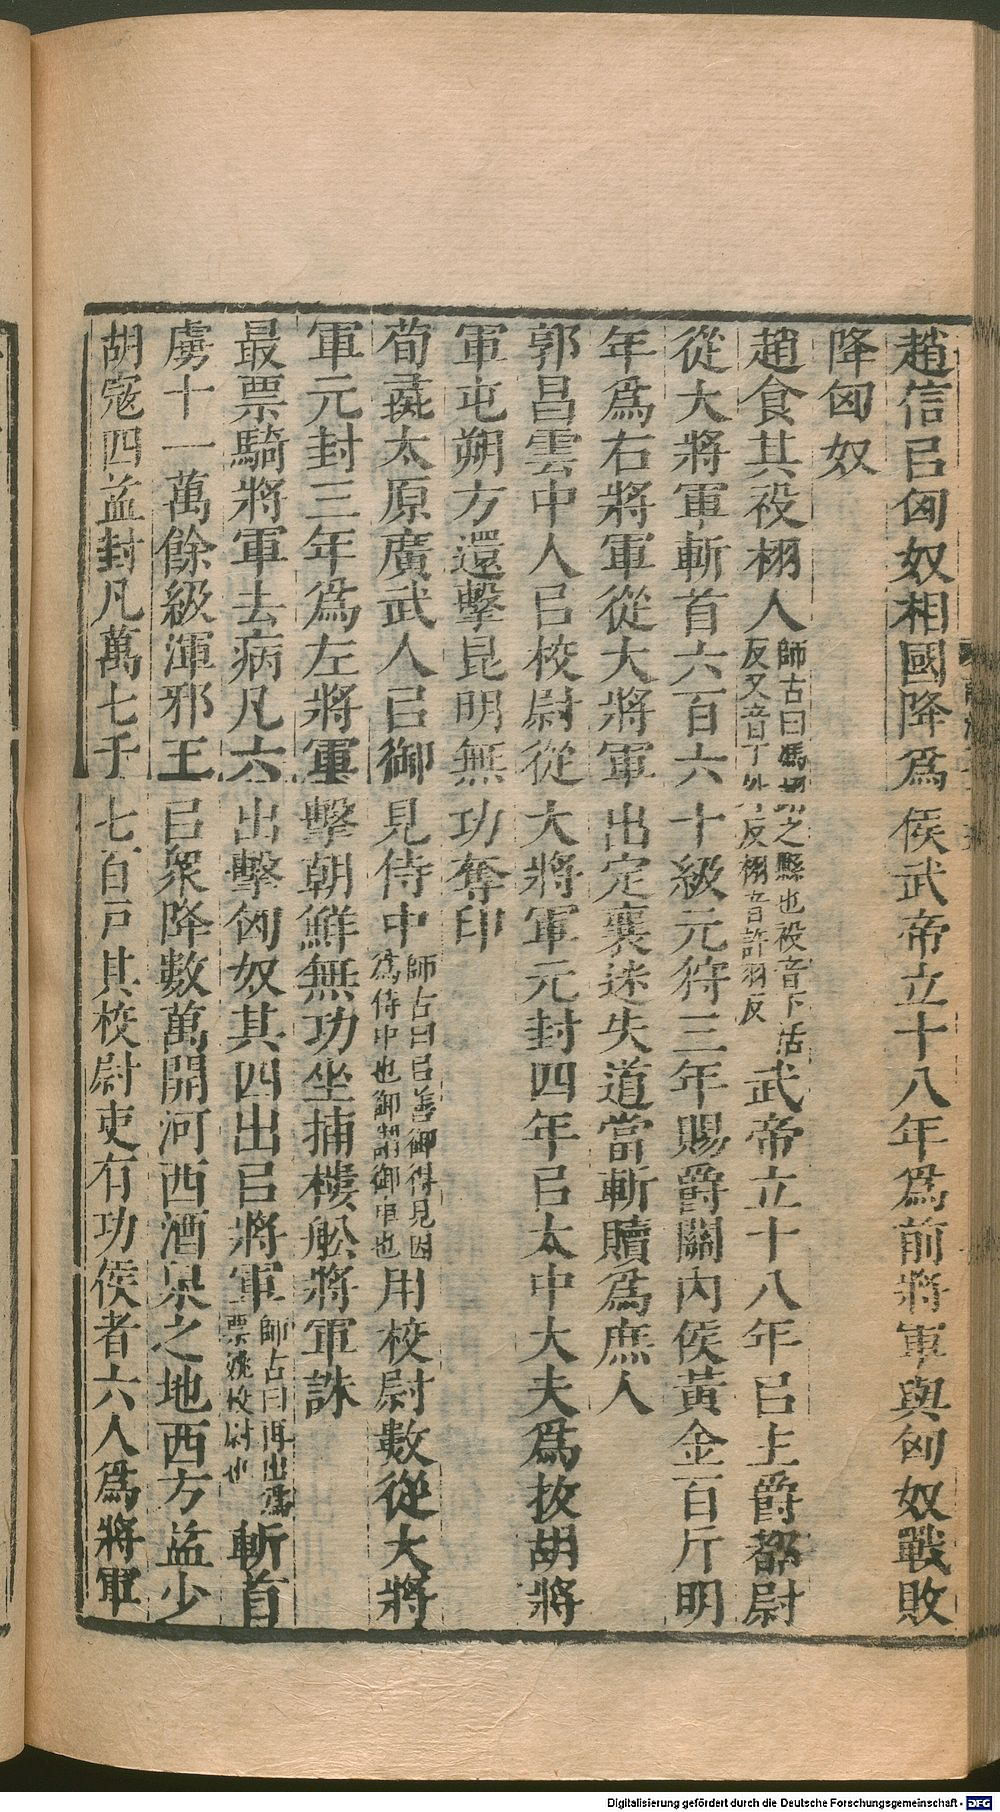 趙信㠯匈奴相國降爲侯武帝立十八年爲前將軍與匈奴戰敗
降匈奴
趙食其祋栩人師古曰馮翊之縣也祋音丁活反又音丁外反栩音許羽反武帝立十八年㠯主爵都尉
從大將軍斬首六百六十級元狩三年賜爵關內侯黃金百斤明
年爲右將軍從大將軍出定襄迷失道當斬贖爲庶人
郭昌雲中人㠯校尉從大將軍元封四年㠯太中大夫爲拔胡將
軍屯朔方還擊昆明無功奪印
荀彘太原廣武人㠯御見侍中師古曰㠯善御得見因爲侍中也御謂御車也用校尉數從大將
軍元封三年爲左將軍擊朝鮮無功坐捕樓船將軍誅
最票騎將軍去病凡六出擊匈奴其四出㠯將軍師古曰再出爲票姚校尉也斬首
虜十一萬餘級渾邪王㠯衆降數萬開河西酒泉之地西方益少
胡寇四益封凡萬七千七百戶其校尉吏有功侯者六人爲將軍
Digitalisierung gefördert durch die Deutsche Forschungsgemeinschaft - DFG